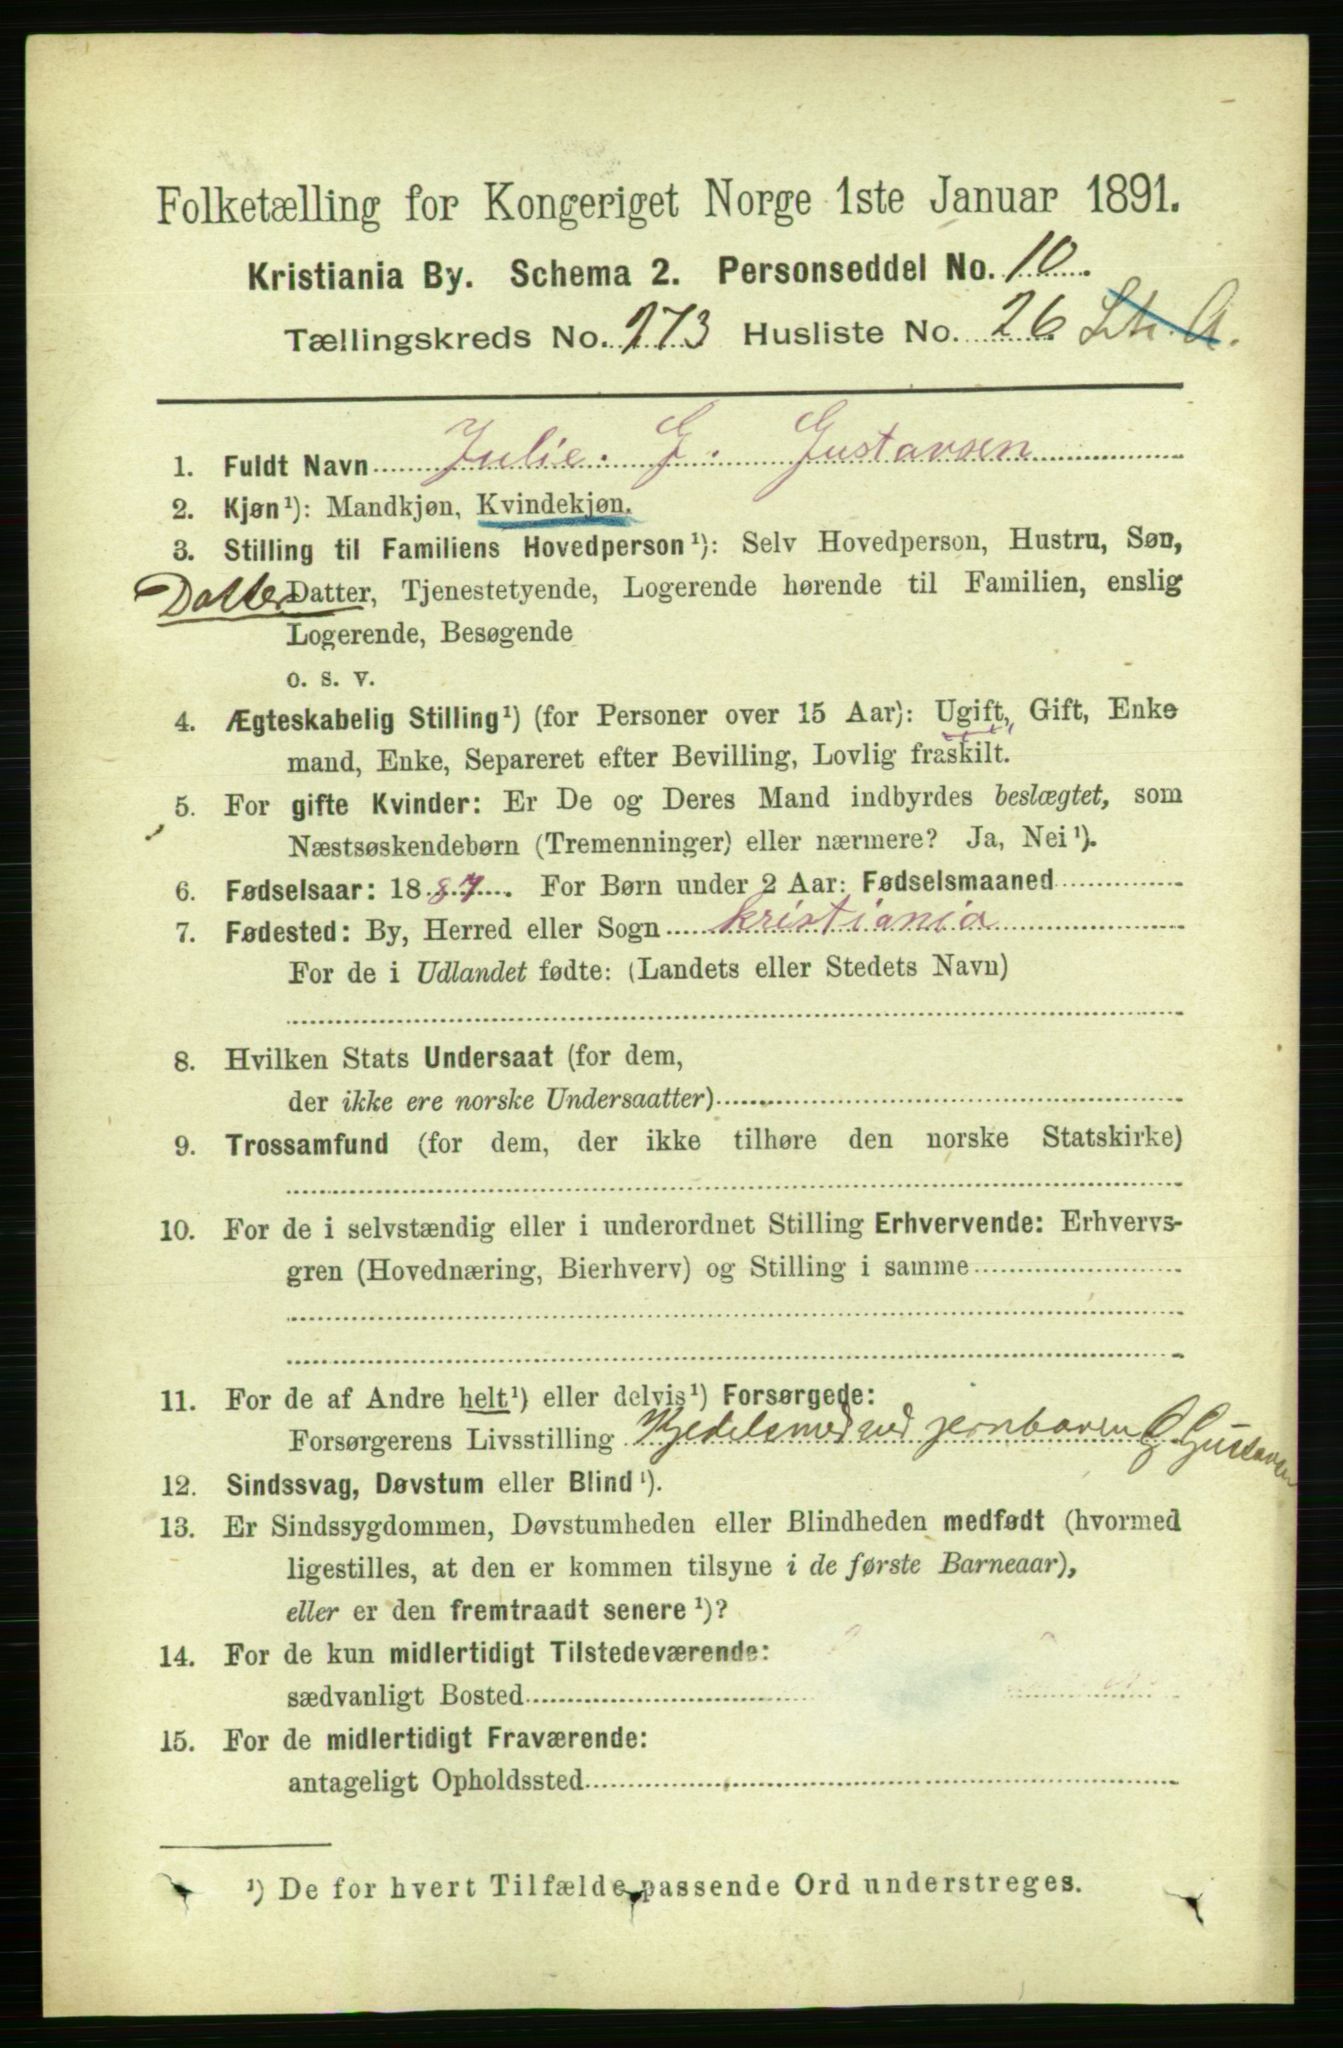 Folketælling for Kongeriget Norge 1ste Januar 1891.
Kristiania By. Schema 2. Personseddel No. 10
Tællingskreds No. 273 Husliste No. 26 Litr. A.
1. Fuldt Navn Julie. G. Gustavsen
2. Kjøn¹): Mandkjøn, Kvindekjøn.
3. Stilling til Familiens Hovedperson¹): Selv Hovedperson, Hustru, Søn,
Datter Datter, Tjenestetyende, Logerende hørende til Familien, enslig
Logerende, Besøgende
o. s. v.
4. Ægteskabelig Stilling¹) (for Personer over 15 Aar): Ugift, Gift, Enke
mand, Enke, Separeret efter Bevilling, Lovlig fraskilt.
5. For gifte Kvinder: Er De og Deres Mand indbyrdes beslægtet, som
Næstsøskendebørn (Tremenninger) eller nærmere? Ja, Nei¹).
6. Fødselsaar: 1887. For Børn under 2 Aar: Fødselsmaaned
7. Fødested: By, Herred eller Sogn kristiania
For de i Udlandet fødte: (Landets eller Stedets Navn)
8. Hvilken Stats Undersaat (for dem,
der ikke ere norske Undersaatter)
9. Trossamfund (for dem, der ikke tilhøre den norske Statskirke)
10. For de i selvstændig eller i underordnet Stilling Erhvervende: Erhvervs-
gren (Hovednæring, Bierhverv) og Stilling i samme
11. For de af Andre helt¹) eller delvis¹) Forsørgede:
Forsørgerens Livsstilling Kjedelsmed ved jernbaven G Gustavsen
12. Sindssvag, Døvstum eller Blind¹).
13. Er Sindssygdommen, Døvstumheden eller Blindheden medfødt (hvormed
ligestilles, at den er kommen tilsyne i de første Barneaar),
eller er den fremtraadt senere¹)?
14. For de kun midlertidigt Tilstedeværende:
sædvanligt Bosted
15. For de midlertidigt Fraværende:
antageligt Opholdssted
¹) De for hvert Tilfælde passende Ord understreges.